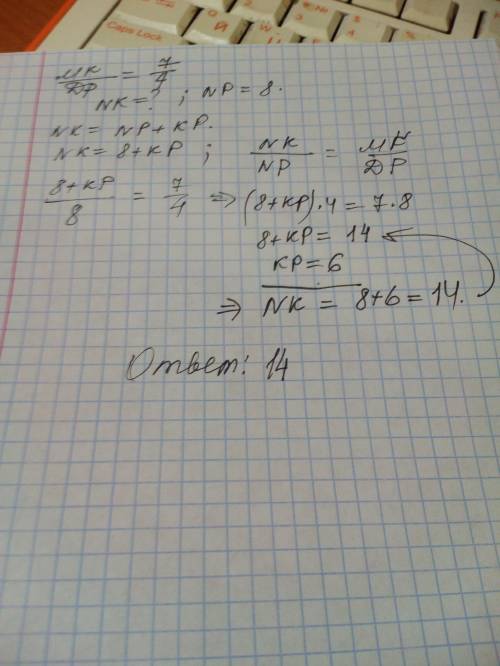 Caps Lock
МК/DP = 7/4
NK = ? ; NP = 8.
NK = NP + KP.
NK = 8+KP ; NK/NP = МР/DP
8+KP/8 = 7/4 => (8+KP)·4 = 7·8
8+KP = 14
KP = 6
=> NK = 8+6 = 14.
Ответ: 14